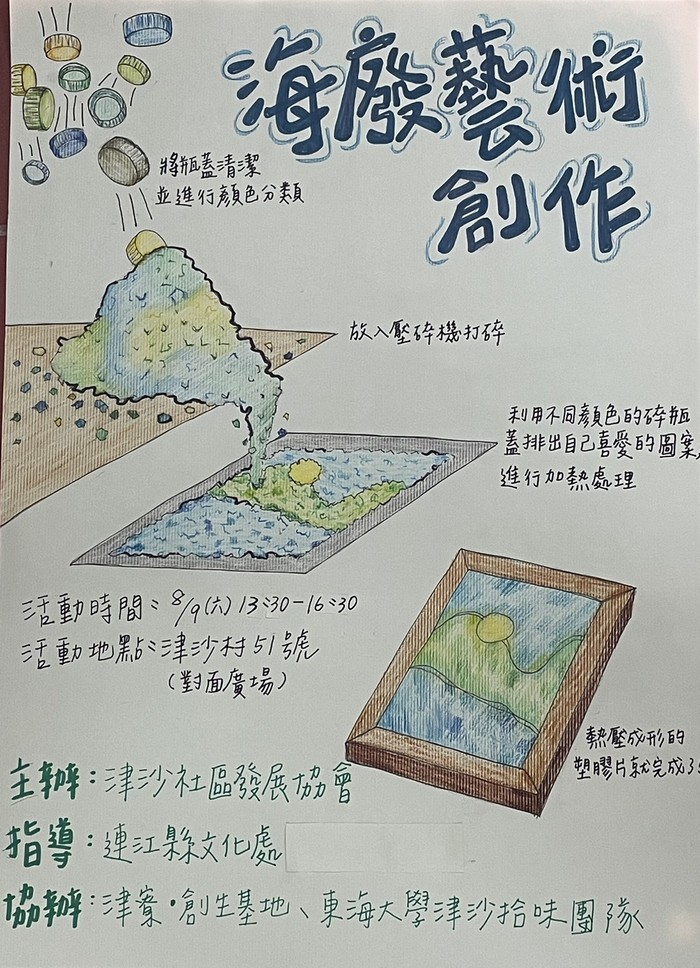 海廢藝術
創作
將瓶蓋清潔
並進行顏色分類
放入壓碎機打碎
利用不同顏色的碎瓶
蓋排出自己喜愛的圖案,
進行加熱處理
活動時間:8/9(六)13:30-16:30
活動地點:津沙村51號
(對面廣場)
熱壓成形的
塑膠片就完成了
主辦:津沙社區發展協會
指導:連江縣文化處
協辦:津寮·創生基地、東海大學津沙拾味團隊